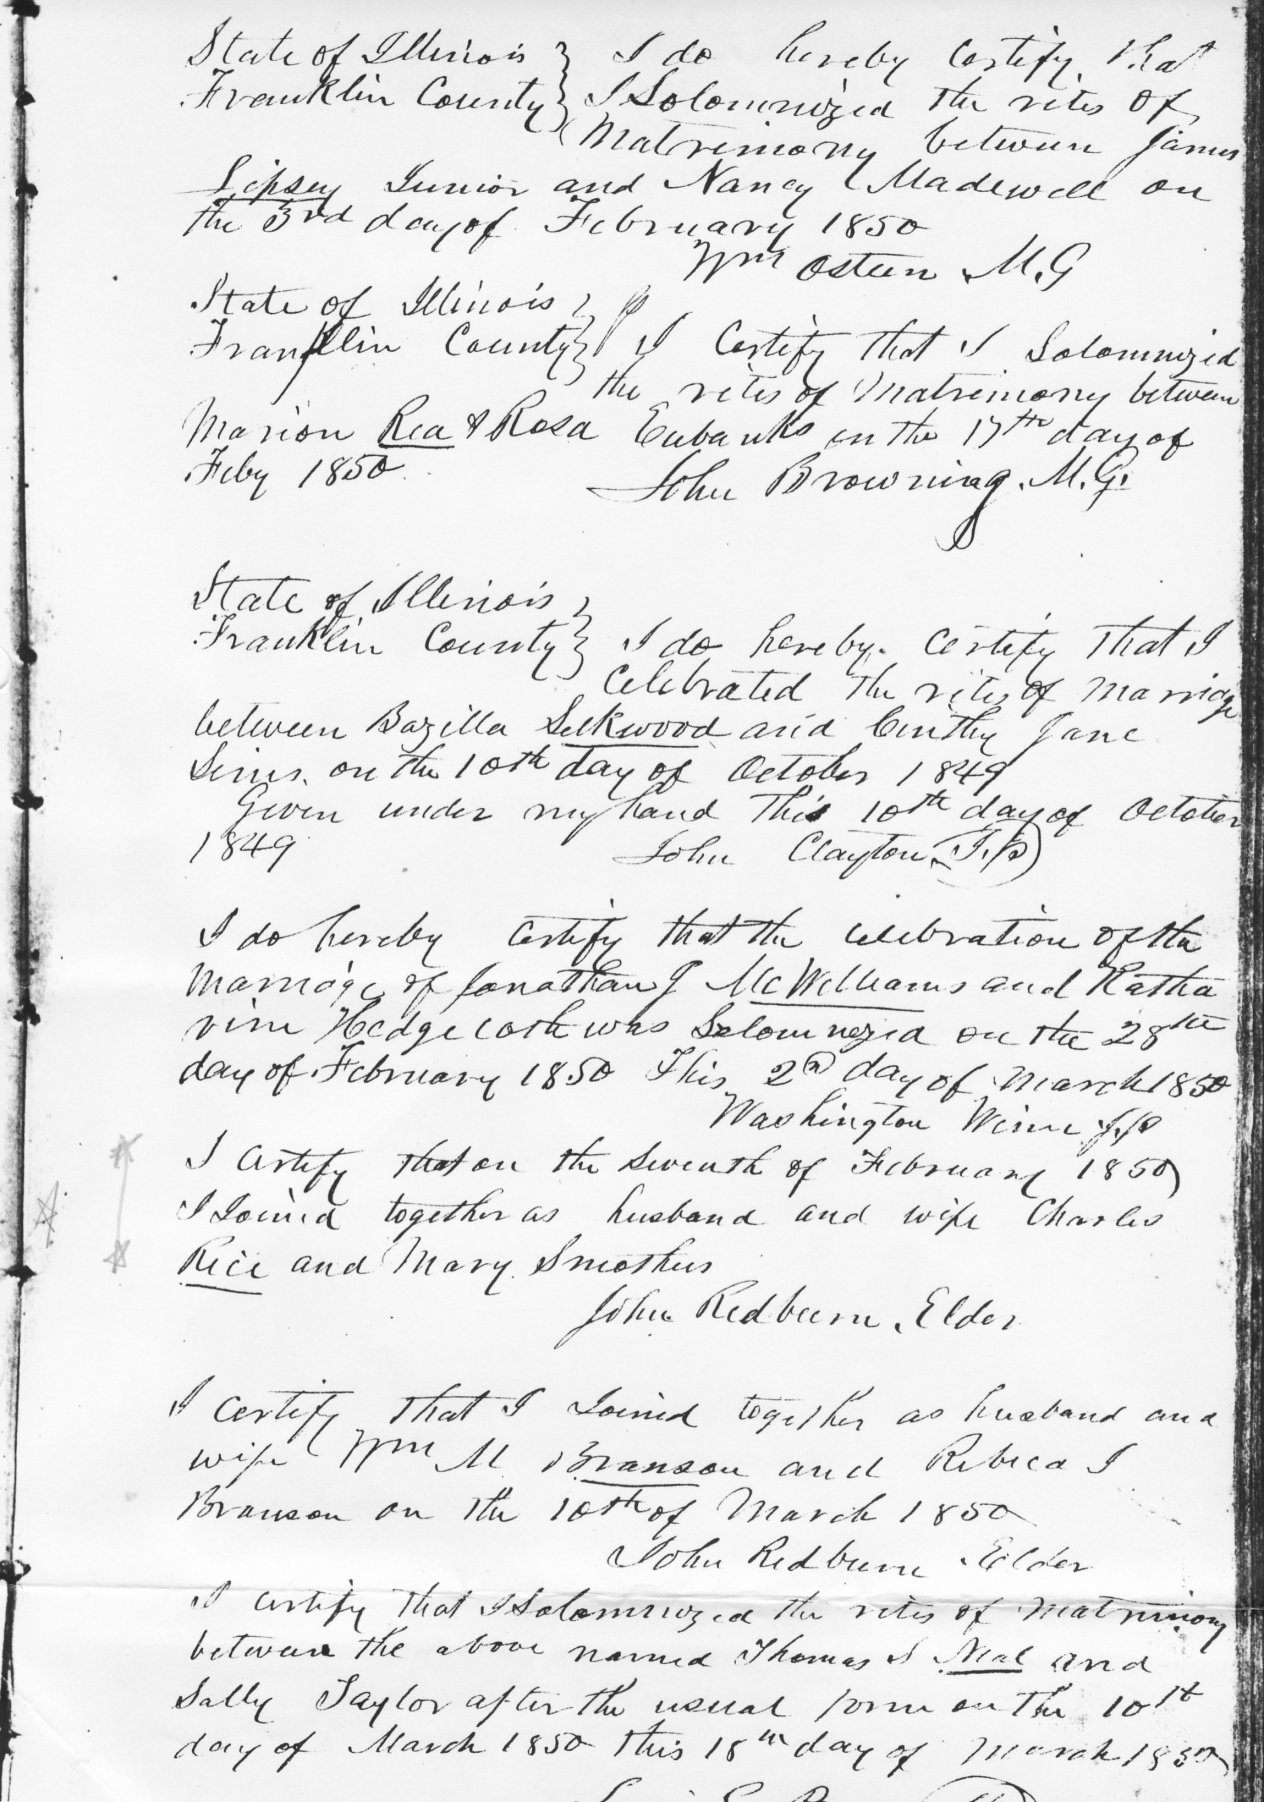 State of Illinois } I do hereby Certify that
Franklin County } I Solomnized the rites of
Matrimony between James
Lipsey Junior and Nancy Madewell on
the 3rd day of February 1850
Wm Osteen M.G
State of Illinois }
Franklin County } I Certify that I Solomnized
the rites of Matrimony between
Marion Rea & Rosa Eubanks on the 17th day of
Feby 1850
John Browning. M.G.
State of Illinois }
Franklin County } I do hereby Certify that I
Celebrated the rites of Marriage
between Bazilla Silkwood and Cinthy Jane
Sims. on the 10th day of October 1849
Given under my hand this 10th day of October
1849 John Clayton J.P
I do hereby Certify that the celebration of the
Marriage of Jonathan J McWilliams and Katha
rine Hedgecoth was Solomnezed on the 28th
day of February 1850 This 2d day of March 1850
Washington J.P
I Certify that on the Seventh of February 1850
I Joined together as husband and wife Charles
Rice and Mary Smothers
John Redburn. Elder
I Certify that I Joined together as husband and
wife Wm M Branson and Rebeca J
Branson on the 10th of March 1850
John Redburn Elder
I certify that I Solomnized the rites of Matrimony
between the above named Thomas S Neal and
Sally Taylor after the usual form on the 10th
day of March 1850 this 18th day of March 1850